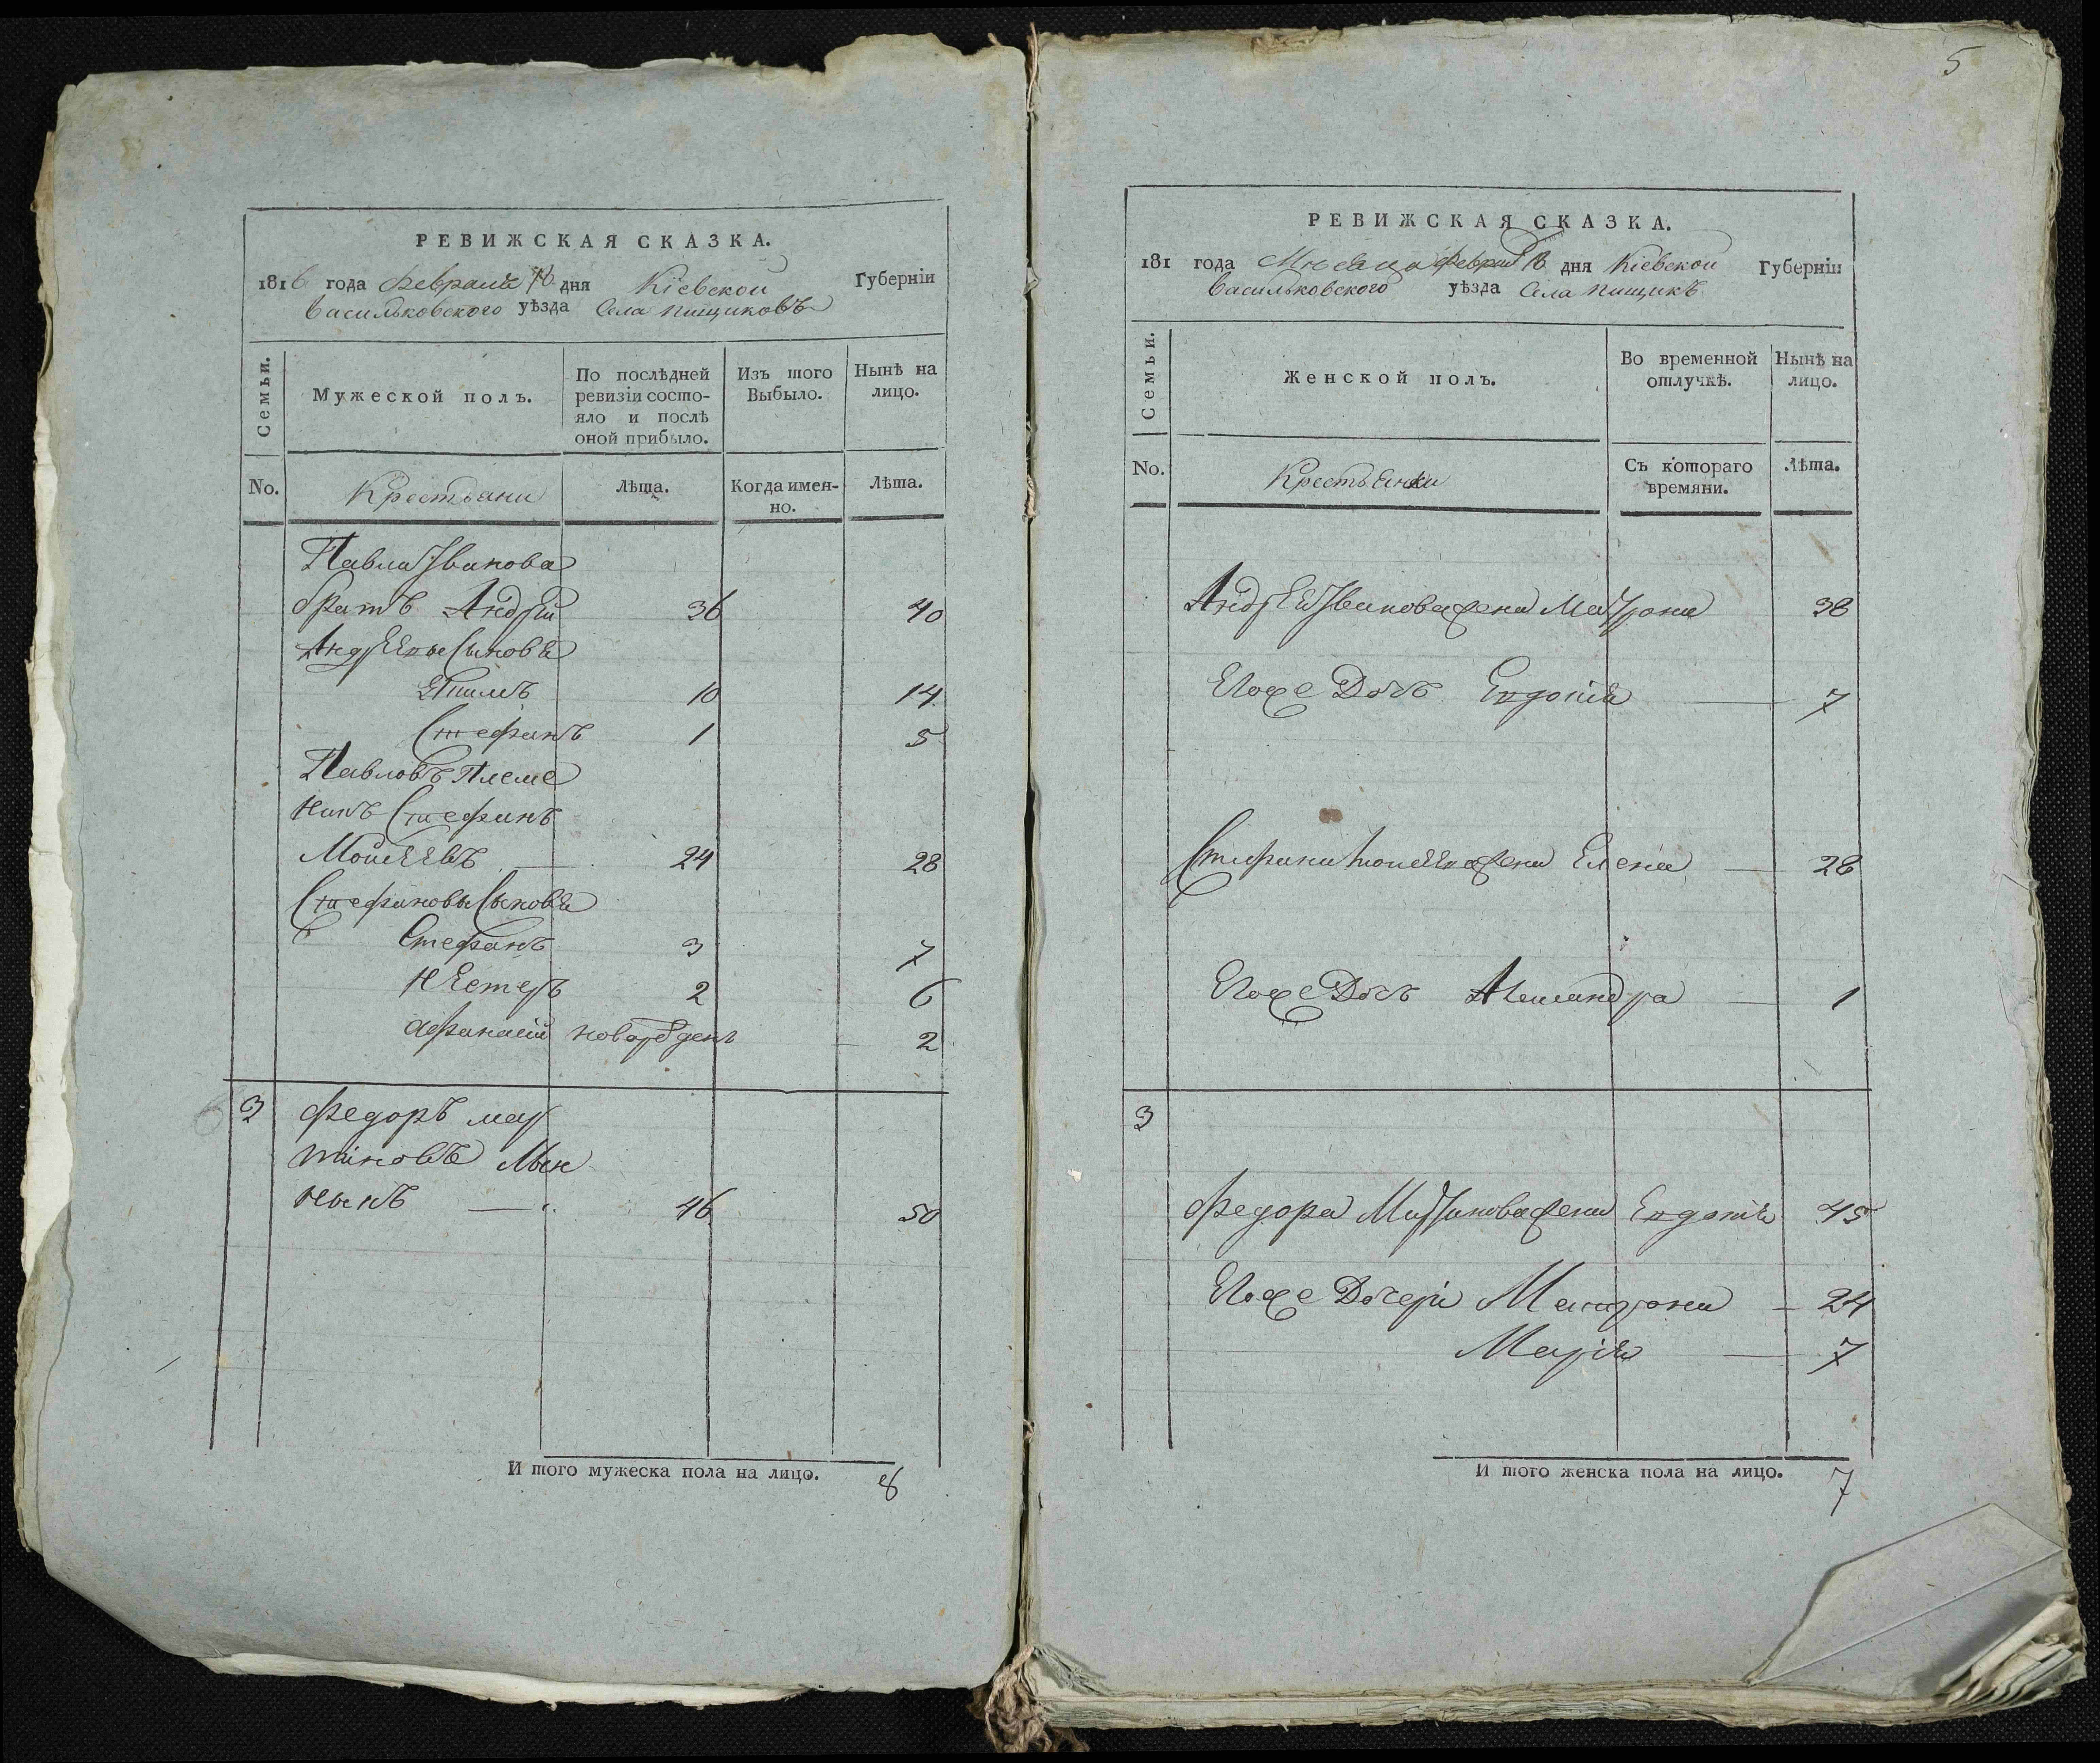 РЕВИЖСКАЯ СКАЗКА.
1816 года Февраля 18 дня Кіевской Губерніи
Васильковского уѣзда Села пищиковъ
Семьи. Мужеской полъ. По послѣдней ревизіи состояло и послѣ оной прибыло. Изъ того Выбыло. Нынѣ на лицо.
No. Крестьяни Лѣта. Когда именно. Лѣта.
Павла Иванова
братъ Андрей 36 40
Андреевы Сыновя
10 14
Стефанъ 1 5
Павловъ Племе
никъ Стефанъ
Мойсеевъ 24 28
Стефановы Сыновя
Стефанъ 3 7
Нестеръ 2 6
Афанасій новорожденъ 2
3 Федоръ мар
тиновъ Мен
ныкъ 46 50
И того мужеска пола на лицо. 8
5
РЕВИЖСКАЯ СКАЗКА.
181 года Месяца Февраля 18 дня Кіевской Губерніи
Васильковского уѣзда Села пищикъ
Семьи. Женской полъ. Во временной отлучкѣ. Нынѣ на лицо.
No. Крестьянки Съ котораго времяни. Лѣта.
Андрея Иванова жена Матрона 38
Егоже Дочь Евдокія 7
Стефана Мойсеева жена Елена 28
Егоже Дочь Александра 1
3
Федора Мартинова жена Евдокія 45
Егоже Дочери Матрона 24
Марія 7
И того женска пола на лицо. 7